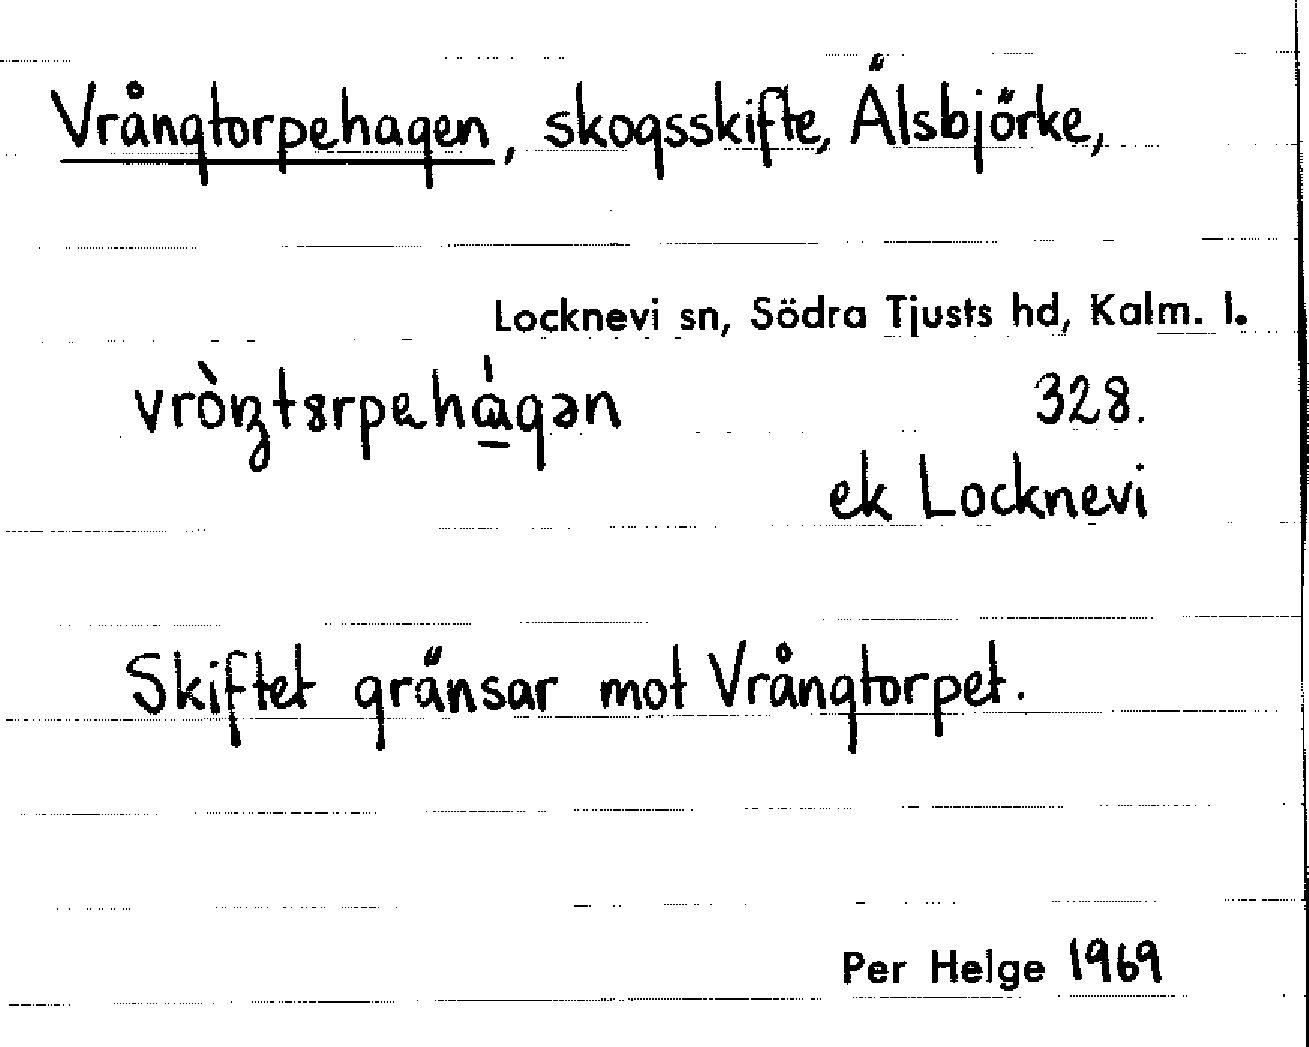 Vrångtorpehagen, skogsskifte, Älsbjörke,
Locknevi sn, Södra Tjusts hd, Kalm. l.
vròŋtɞrpehágən 328.
ek Locknevi
Skiftet gränsar mot Vrångtorpet.
Per Helge 1969